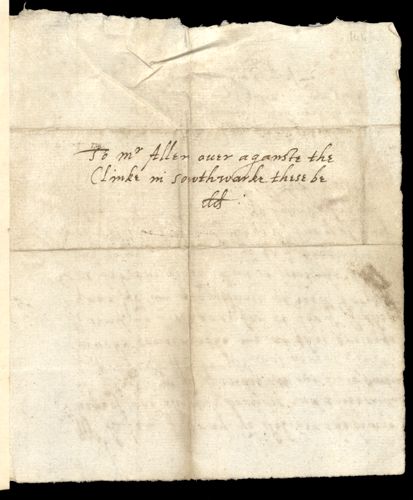 To mr Allen ouer aganste the
Clinke in sowthwarke these be
dd :